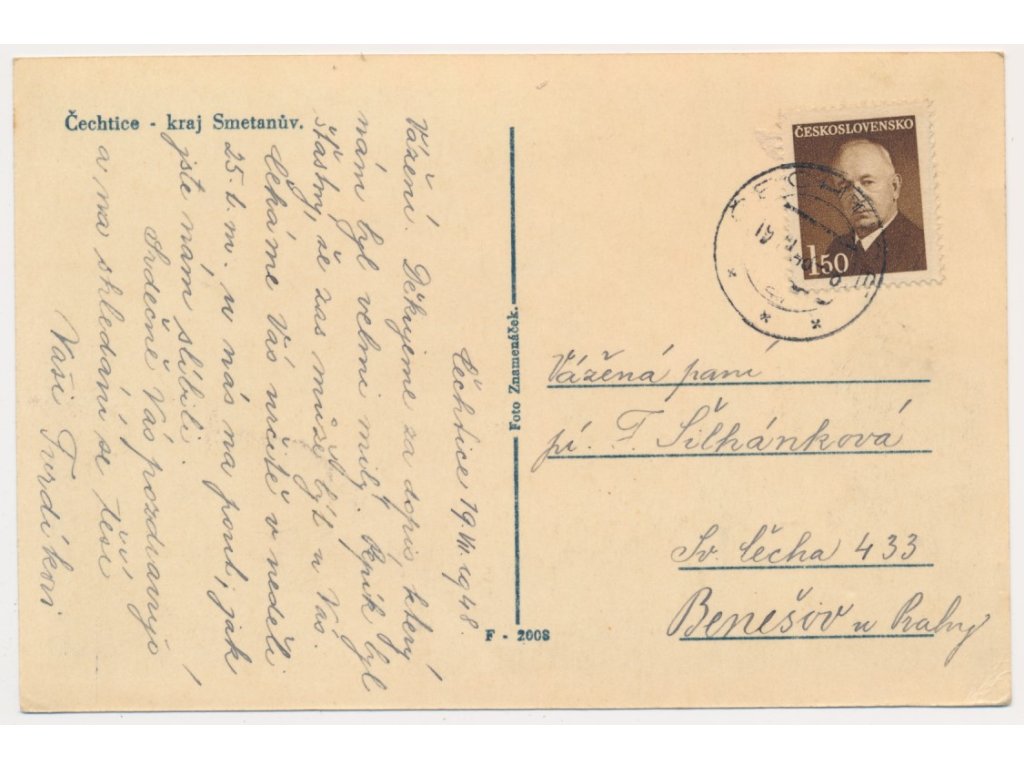 Čechtice - kraj Smetanův.
Čechtice 19.VII.1948.
Vážení. Děkujeme za dopis, který
nám byl velmi milý. byl
šťastný, že zas může být u Vás.
Čekáme Vás určitě v neděli
25. t. m. u nás na pouť, jak
jste nám slíbili.
Srdečně Vás pozdravují
a na shledání se těší
Vaši Tvrdíkovi
Foto Znamenáček.
F - 2008
ČESKOSLOVENSKO
1.50
Vážená paní
pí. F. Šilhánková
Sv. Čecha 433
Benešov u Prahy